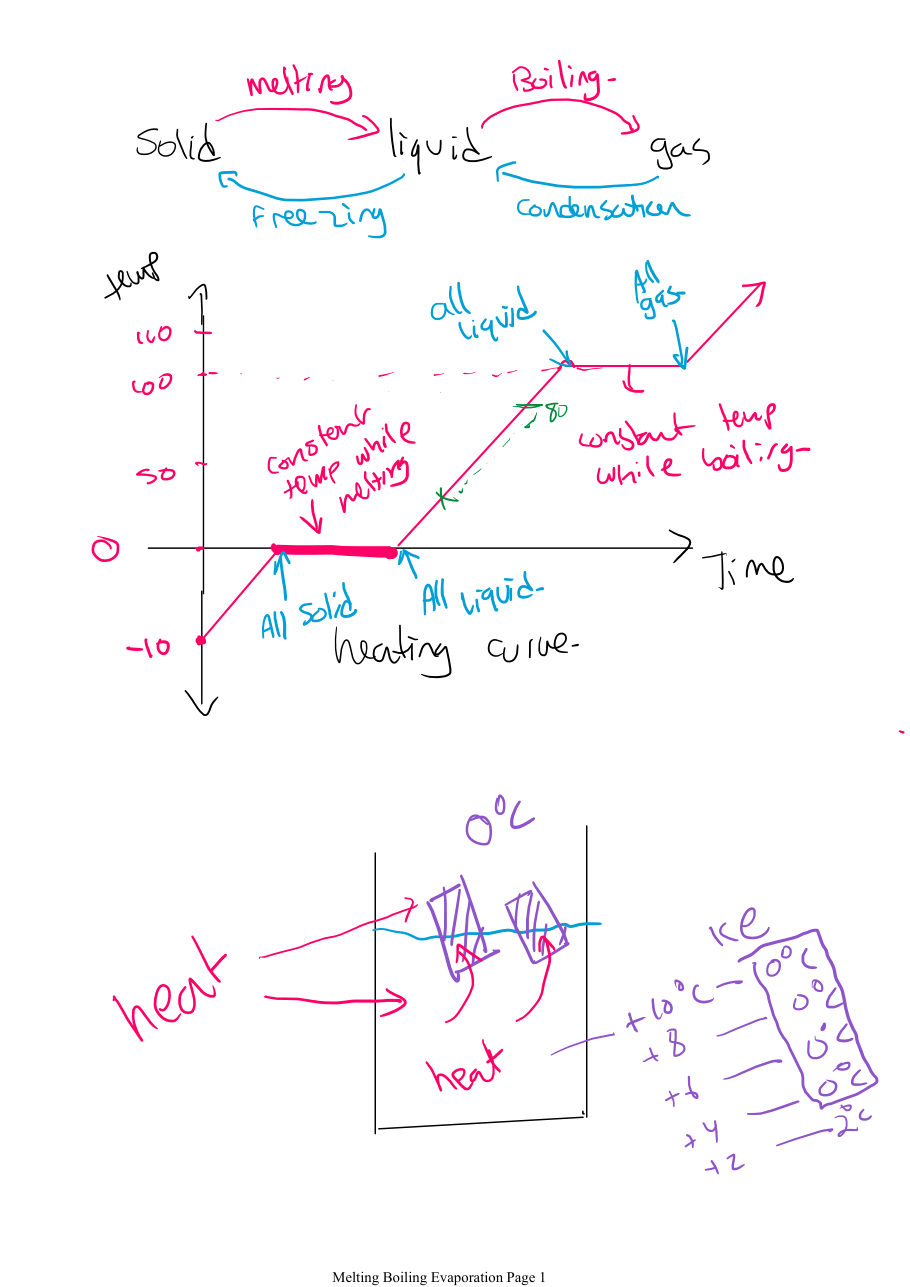 melting
Boiling-
Solid
liquid
gas
Freezing
Condensation
temp
all
liquid
All
gas-
100
50
80
constant
temp while
melting
constant temp
while boiling-
0
Time
All Solid
All liquid-
-10
heating curve-
0°C
heat
heat
KE
0°C
0°C
0°C
0°C
2°C
+10°C
+8
+6
+4
+2
Melting Boiling Evaporation Page 1